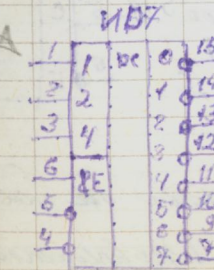 ИД7
1 1 DC 0 15
2 2 1 14
3 4 2 13
3 12
6 &E 4 11
5 5 10
4 6 9
7 7